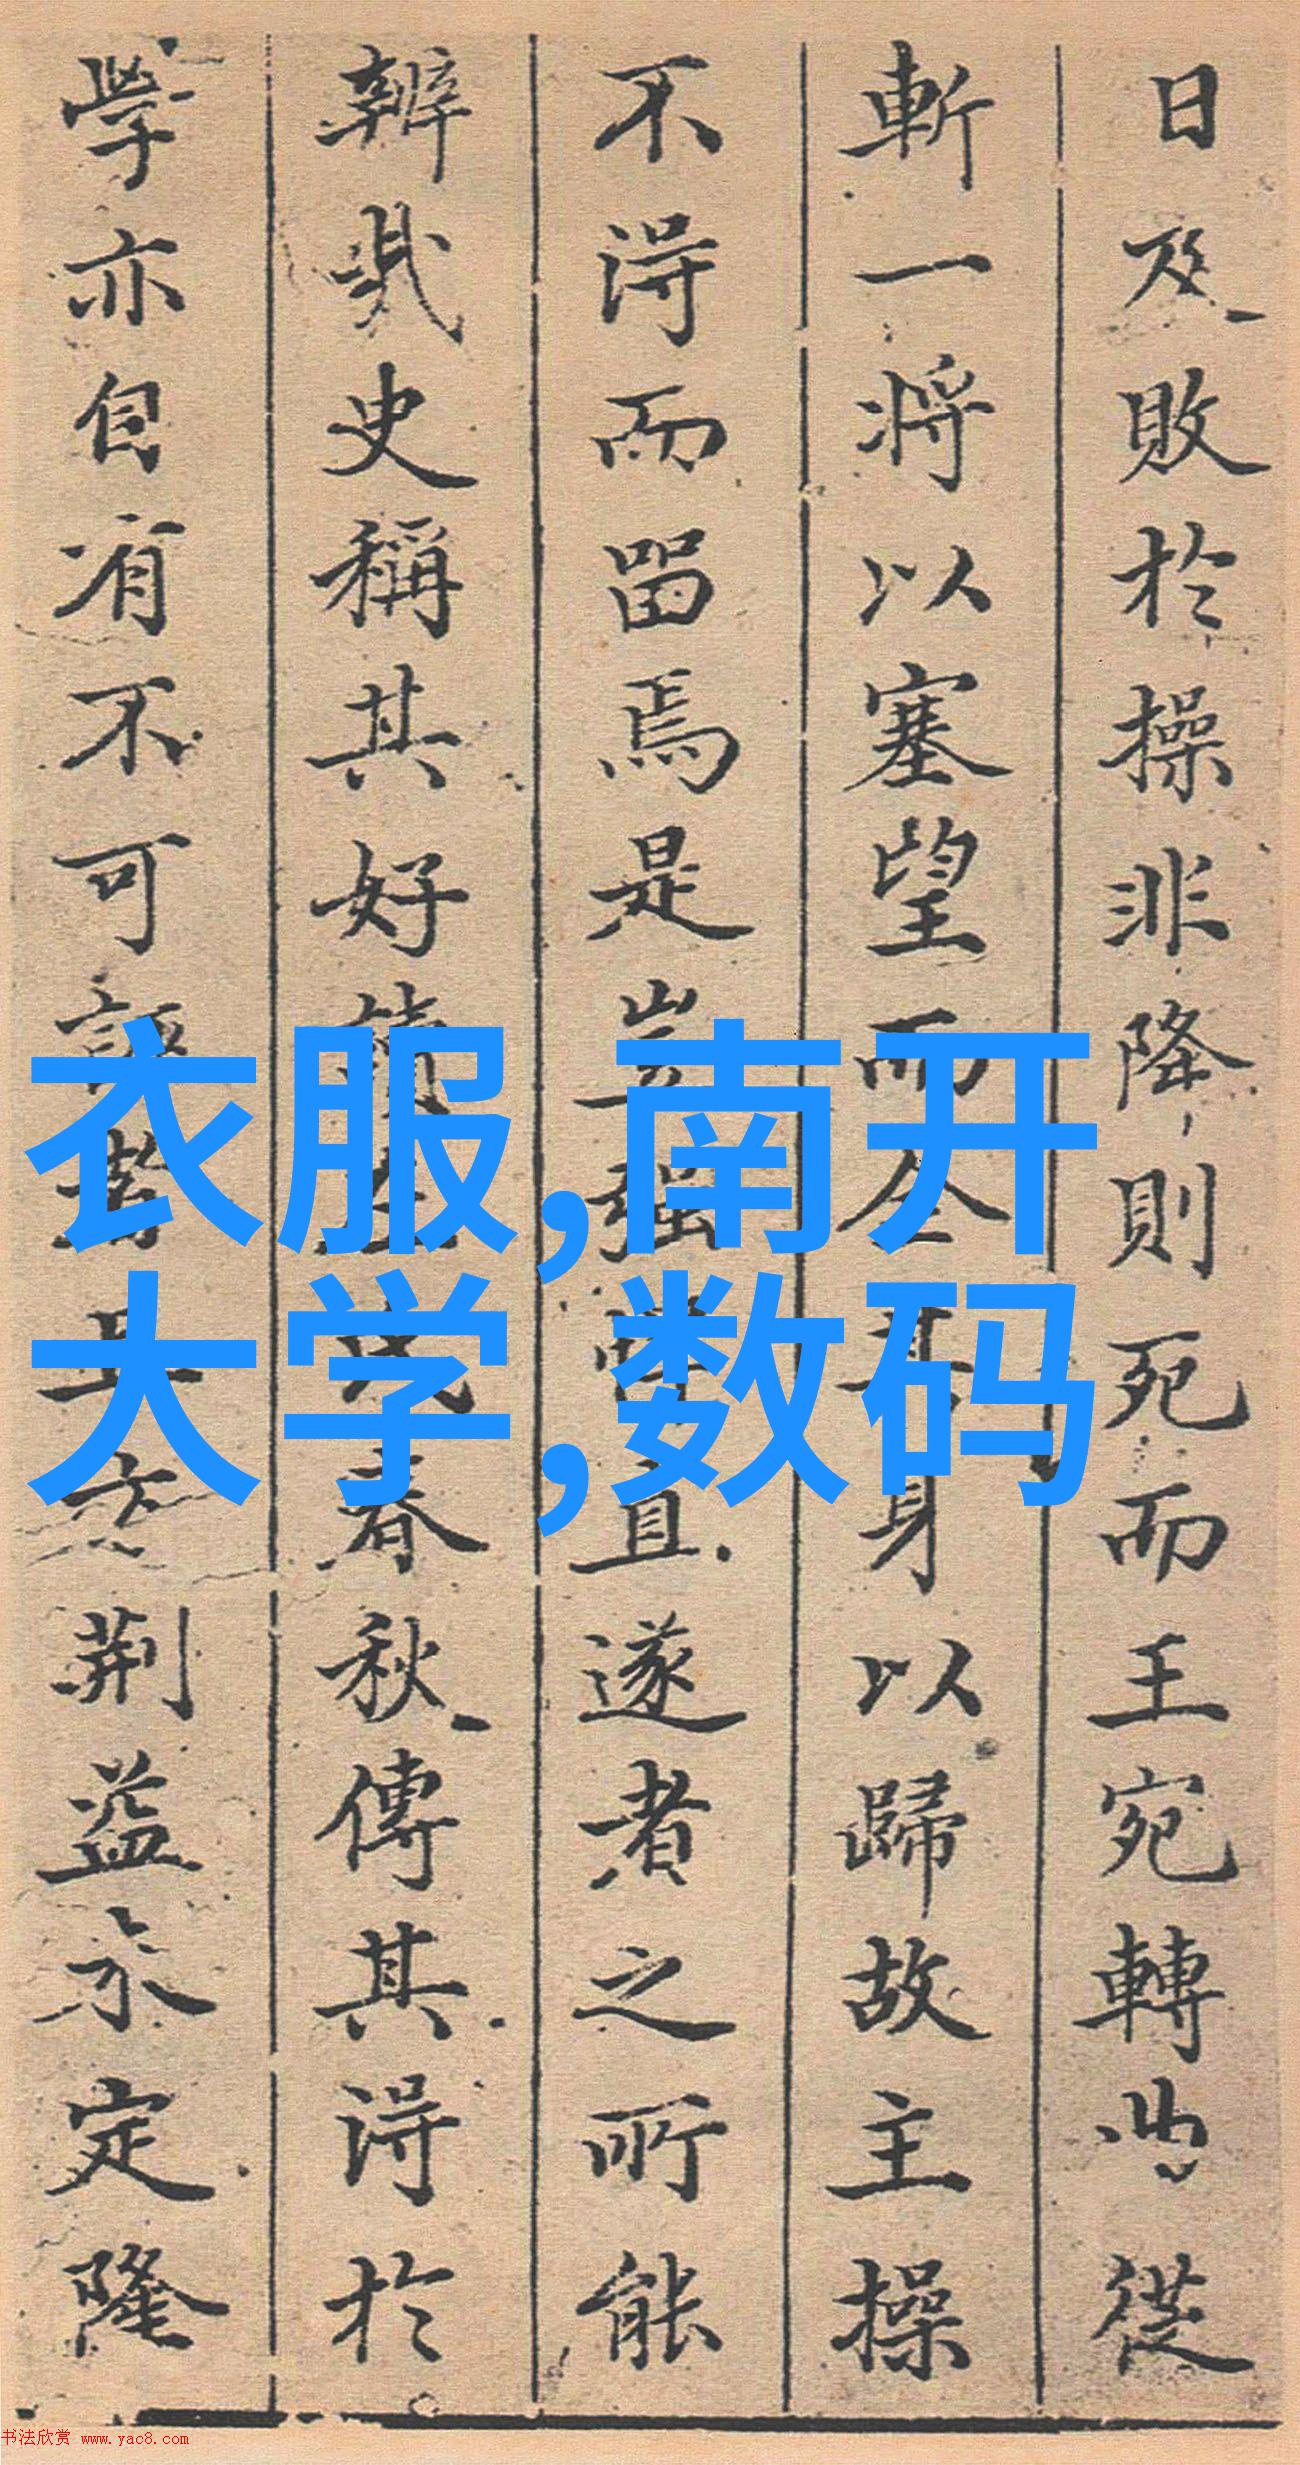 日及敗於操非降則死而王宛轉曲從
斬一将以塞望而全其身以歸故主操
不得而留焉是豈强直遂者之所能
辨哉史稱其好春秋傳其得於
學亦自有不可荆益未定隆
衣服,南开
大学,数码
书法欣赏 www.yac8.com